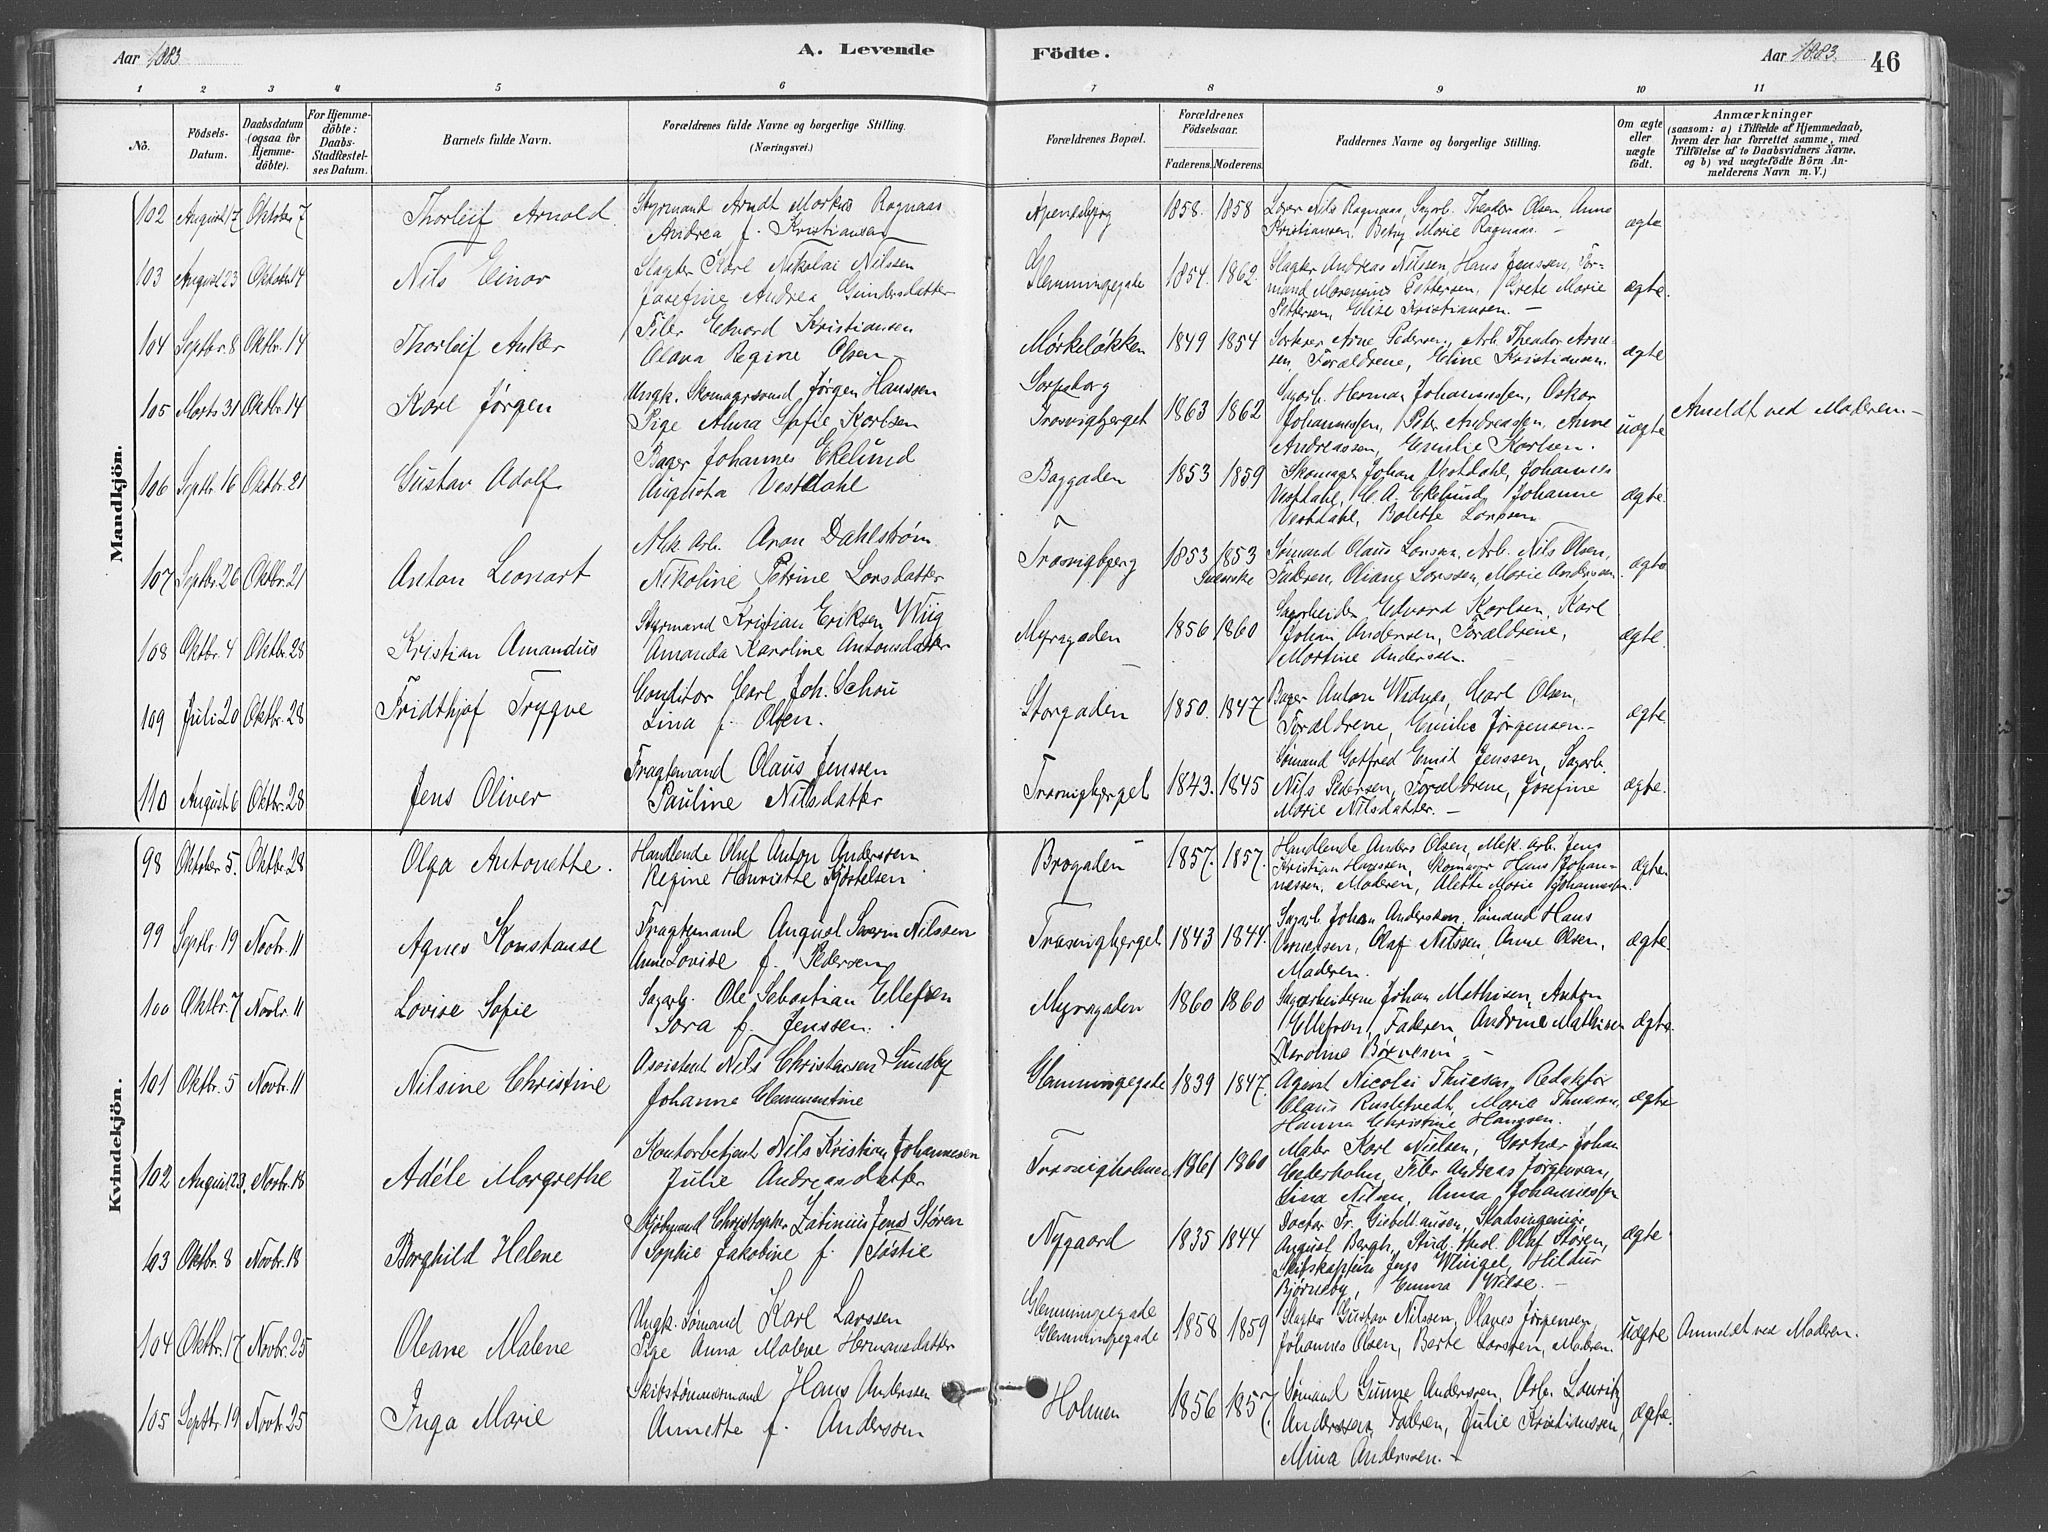 Aar 1883. A. Levende Födte. Aar 1883. 46
1 2 3 4 5 6 7 8 9 10 11
No. Födsels-Datum. Daabsdatum (ogsaa for Hjemme-döbte). For Hjemme-döbte: Daabs-Stadfæstel-ses Datum. Barnets fulde Navn. Forældrenes fulde Navne og borgerlige Stilling. (Næringsvei.) Forældrenes Bopæl. Forældrenes Födselsaar. Faderens. Moderens. Faddernes Navne og borgerlige Stilling. Om ægte eller uægte födt. Anmærkninger (saasom: a) i Tilfælde af Hjemmedaab, hvem der har forrettet samme, med Tilföielse af to Daabsvidners Navne, og b) ved uægtefödte Börn An-melderens Navn m. V.)
Mandkjön.
102 August 17 Oktober 7 Thorleif Arnold. Styrmand Arndt Markus Ragnaas
Andrea f. Kristiansen
Apenesbjerg 1858. 1858 Nils Ragnaas, Sagarb. Theodor Olsen, Anne
Kristiansen, Betzy Marie Ragnaas. — ægte
103 August 23 Oktober 14 Nils Einar Slagter Karl Nikolai Nilssen
Josefine Andrea Gundersdatter
Glemmingegade 1854. 1862. Slagter Andreas Nilssen, Hans Jenssen, For-
mand Marensius Pettersen, Grete Marie
Pettersen, Elise Kristiansen. — ægte.
104 Septbr. 8 Oktbr. 14 Thorleif Anker Filer Edvard Kristiansen
Olava Regine Olsen
Mørkeløkken 1849 1854 Arne Pedersen, Arb. Theodor Arne-
sen, Forældrene, Eline Kristiansen. ægte
105 Marts 31 Oktbr. 14 Karl Jørgen Ungk. Skomagersvend Jørgen Hanssen
Pige Alma Sofie Karlsen
Sarpsborg
Trosvigbjerget 1863 1862 Sagarb. Herman Johannessen, Oskar
Johannessen, Peter Andreassen, Anne
Andreassen, Emilie Karlsen. uægte Anmeldt ved Moderen —
106 Septbr. 16 Oktbr. 21 Gustav Adolf Bager Johannes Ekelund
Augusta Vestdahl
Baggaden 1853 1859 Skomager Johan Vestdahl, Johannes
Vestdahl, C. A. Ekelund, Johanne
Vestdahl, Bolette Larssen ægte
107 Septbr. 26 Oktbr. 21 Anton Leonart Mek. Arb. Aron Dahlstrøm
Nikoline Petrine Larsdatter
Trosvigbjerg 1853 1853
Svenske Sømand Olaus Larssen, Arb. Nils Olsen,
Faderen, Oliane Larssen, Marie Anderssen. ægte
108 Oktbr. 4 Oktbr. 28 Kristian Amandus Styrmand Kristian Eriksen Wiig
Amanda Karoline Antonsdatter
Myragaden 1856 1860 Sagarbeider Edvard Karlsen, Karl
Johan Andersen, Forældrene,
Martine Anderssen. — ægte.
109 Juli 20 Oktbr. 28 Fridthjof Trygve Conditor Carl Joh. Schou
Lina f. Olsen.
Storgaden 1850. 1847 Bager Anton Widnes, Carl Olsen,
Forældrene, Emilie Jørgensen — ægte.
110 August 6 Oktbr. 28 Jens Oliver Fragtemand Olaus Jenssen
Pauline Nilsdatter
Trosvigbjerget 1843. 1845 Sømand Gotfred Emil Jenssen, Sagarb.
Nils Pedersen, Forældrene, Josefine
Marie Nilsdatter. — ægte.
Kvindekjön.
98 Oktober 5. Oktbr. 28 Olga Antonette. Handlende Oluf Anton Anderssen
Regine Henriette
Brogaden 1857. 1857. Handlende Anders Olsen, Mek. Arb. Jens
Kristian Hanssen, Skomager Hans Johan-
nessen, Moderen, Alette Marie Johannessen. ægte
99 Septbr. 19 Novbr. 11 Agnes Konstanse Fragtemand August Severin Nilssen
Anne Lovise f. Pedersen
Trosvigbjerget 1843 1844. Sagarb. Johan Anderssen, Sømand Hans
Olaf Nilssen, Anne Olsen,
Moderen. ægte
100 Oktbr. 7 Novbr. 11 Lovise Sofie Sagarb. Ole Sebastian Ellefsen
Sara f. Jenssen.
Myragaden 1860 1860 Sagarbeiderne Johan Mathisen, Anton
Ellefsen, Faderen, Andrine Mathisen
Karoline — ægte.
101 Oktbr. 5 Novbr. 11 Nilsine Christine Assistent Nils Christensen Sundby
Johanne Clementine
Glemmingegade 1839 1847. Agent Nicolai Thuesen, Redaktør
Olaus Marie Thuesen,
Hanna Christine Hanssen. ægte
102 August 23. Novbr. 18 Adéle Margrethe Kontorbetjent Nils Kristian Johannessen
Julie Andreasdatter
Trosvigholmen 1861 1860 Maler Karl Nielsen, Gartner Johan
Cederholm, Filer Andreas Jørgensen,
Lina Nilsen, Anna Johannessen
103 Oktbr. 8 Novbr. 18 Borghild Helene Christopher Jens Støren
Sophie Jakobine f.
Nygaard 1835 1844 Doctor Fr. Stadsingeniør,
August Bergh, Stud. theol. Olaf Støren,
Skibskaptein Jens Hildur
Bjørneby, Emma Wilse. — ægte.
104 Oktbr. 17 Novbr. 25 Oleane Malene Ungk. Sømand Karl Larssen
Pige Anna Malene Hermansdatter
Glemmingegade
Glemmingegade 1858 1859 Slagter Gustav Nilssen, Olaves Jørgensen,
Johannes Olsen, Berte Larssen, Moderen uægte Anmeldt ved Moderen.
105 Septbr. 19 Novbr. 25 Inga Marie Skibstømmermand Hans Anderssen
Annette f. Anderssen
Holmen 1856 1857. Sømand Gunne Anderssen, Arb. Lauritz
Anderssen, Faderen, Julie Kristianssen,
Mina Anderssen. — ægte.